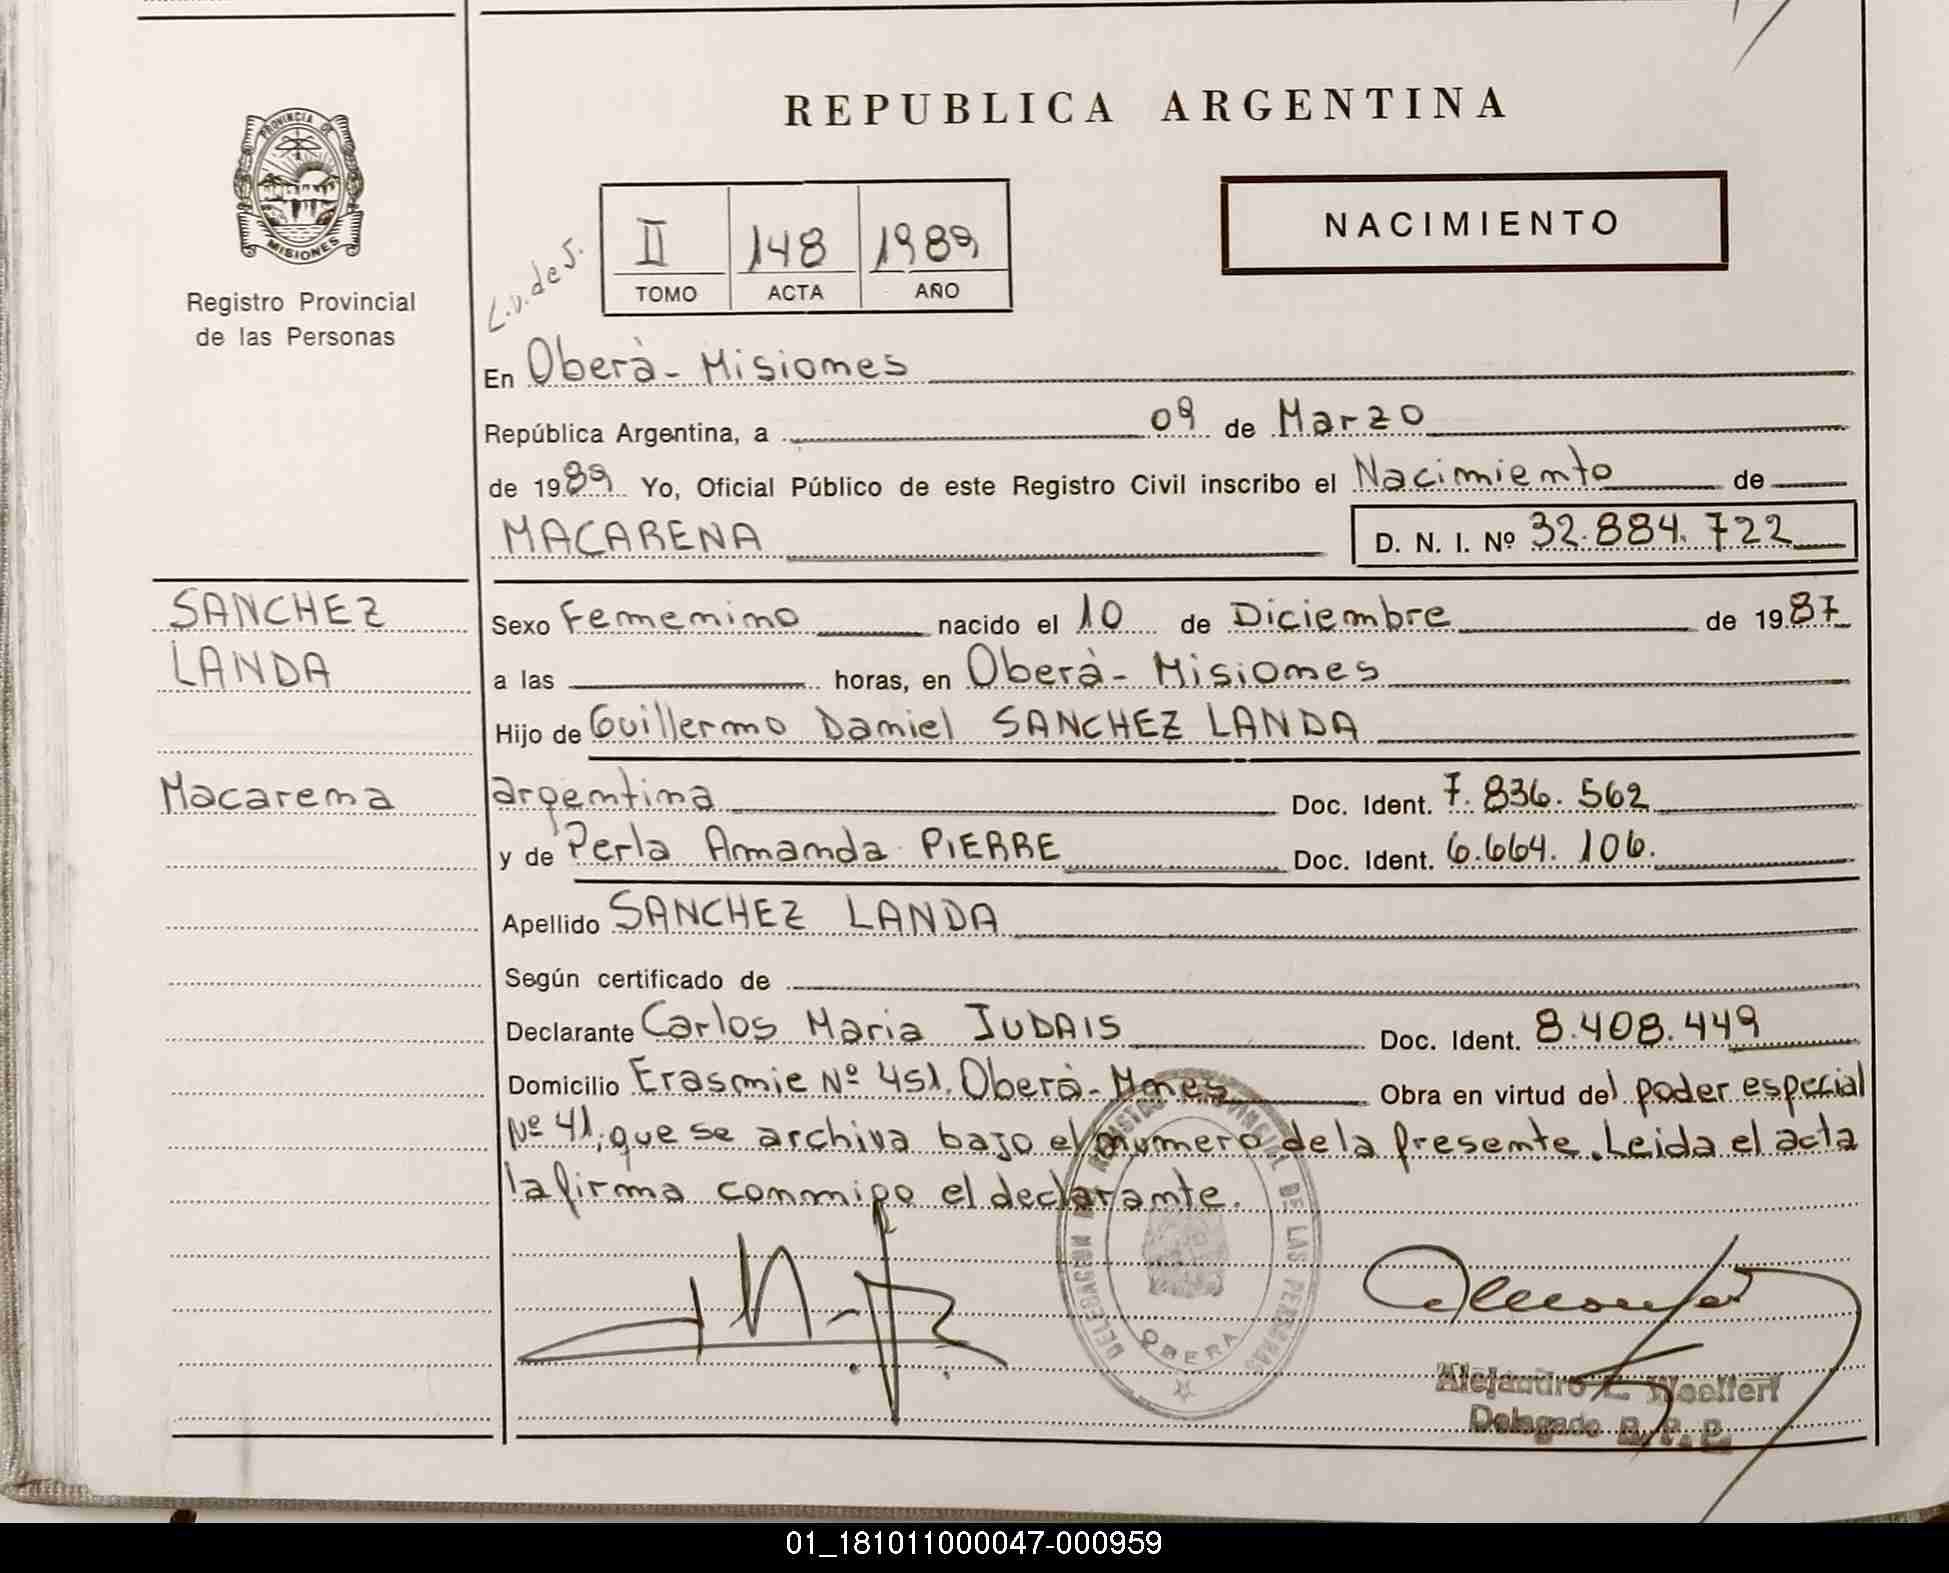 REPUBLICA ARGENTINA
PROVINCIA DE
MISIONES
Registro Provincial
de las Personas
NACIMIENTO
L.v. de S.
II 148 1989
TOMO ACTA AÑO
En Oberà - Misiones
República Argentina, a 09 de Marzo
de 1989 Yo, Oficial Público de este Registro Civil inscribo el Nacimiento de
MACARENA D. N. I. Nº 32.884.722
SANCHEZ
LANDA
Macarena
Sexo Femenino nacido el 10 de Diciembre de 1987
a las horas, en Oberà - Misiones
Hijo de Guillermo Daniel SANCHEZ LANDA
argentina Doc. Ident. 7.836.562
y de Perla Amanda PIERRE Doc. Ident. 6.664.106.
Apellido SANCHEZ LANDA
Según certificado de
Declarante Carlos Maria JUDAIS Doc. Ident. 8.408.449
Domicilio Erasmie Nº 451. Oberà - Mnes Obra en virtud del poder especial
Nº 41, que se archiva bajo el numero de la presente. Leida el acta
la firma conmigo el declarante.
DE LAS PERSONAS
OBERA
Alejandro E. Woelfert
Delegado R. P. P.
01_181011000047-000959